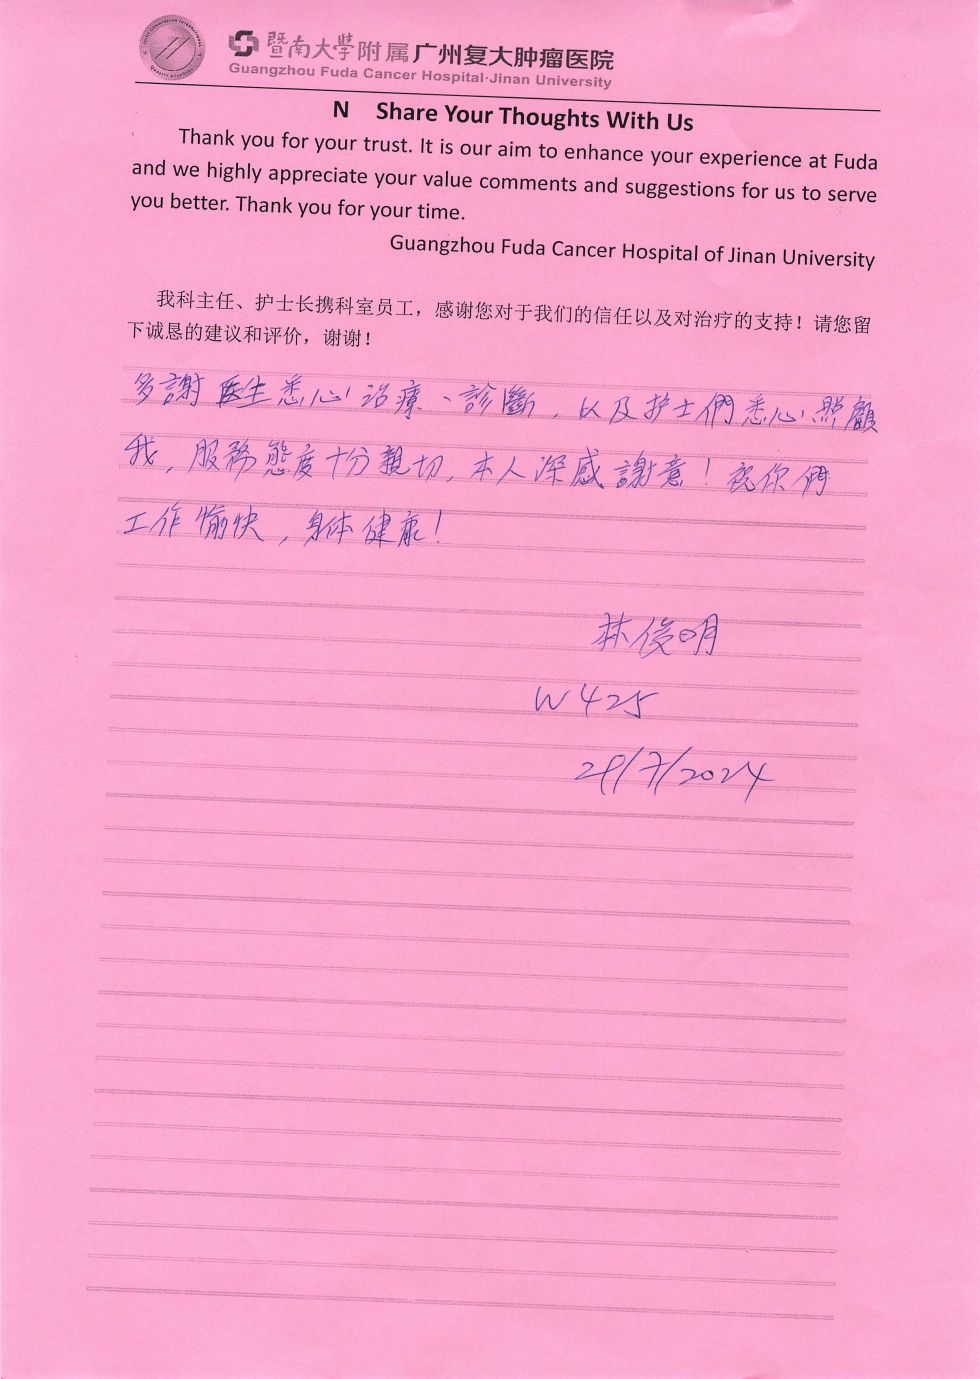 暨南大學附属广州复大肿瘤医院
Guangzhou Fuda Cancer Hospital·Jinan University
N Share Your Thoughts With Us
Thank you for your trust. It is our aim to enhance your experience at Fuda
and we highly appreciate your value comments and suggestions for us to serve
you better. Thank you for your time.
Guangzhou Fuda Cancer Hospital of Jinan University
我科主任、护士长携科室员工，感谢您对于我们的信任以及对治疗的支持！请您留
下诚恳的建议和评价，谢谢！
多謝医生悉心治療、診斷，以及护士們悉心照顧
我，服務態度十分親切，本人深感謝意！祝你們
工作愉快，身体健康！
林俊明
W425
29/7/2024